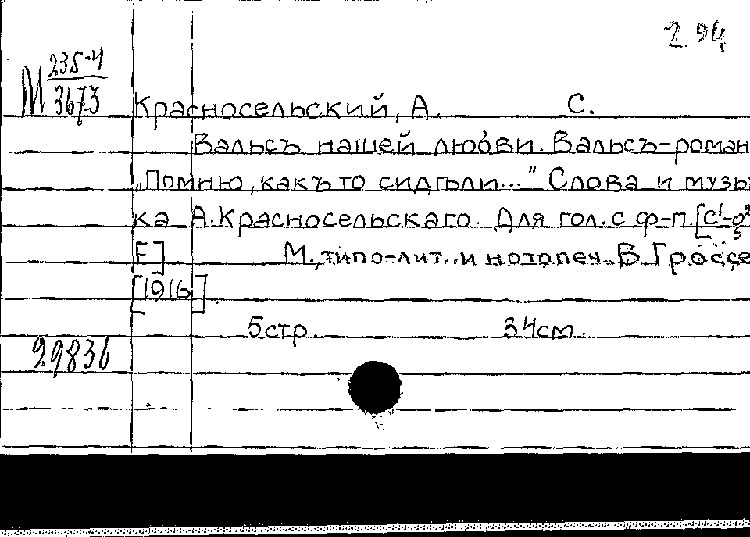 2.94
М 235-4
3673
Красносельский, А. С.
Вальсъ нашей любви. Вальсъ-роман
„Помню, какъ то сидѣли..." Слова и музы
ка А. Красносельскаго. Для гол. с ф-п.
E]
М., типо-лит. и нотопеч. В. Гроссе
[1916]
5стр. 34см.
29836